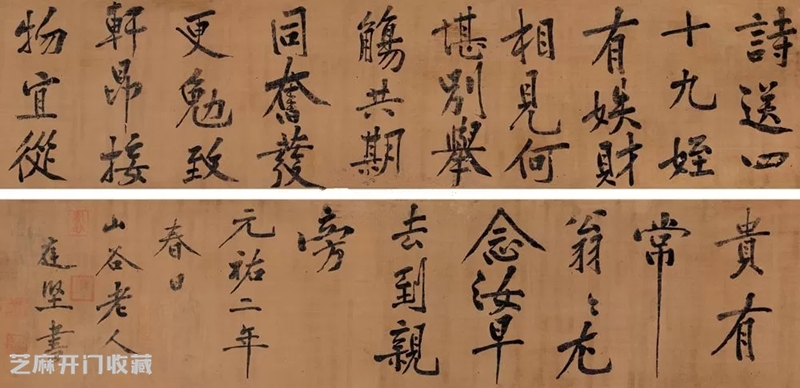 詩送四
十九姪
有財
相見何
堪別舉
觴共期
同奮發
更勉致
軒昂接
物宜從
貴有
常
翁〻尤
念汝早
去到親
傍
元祐二年
春日
山谷老人
庭堅書
芝麻开门收藏